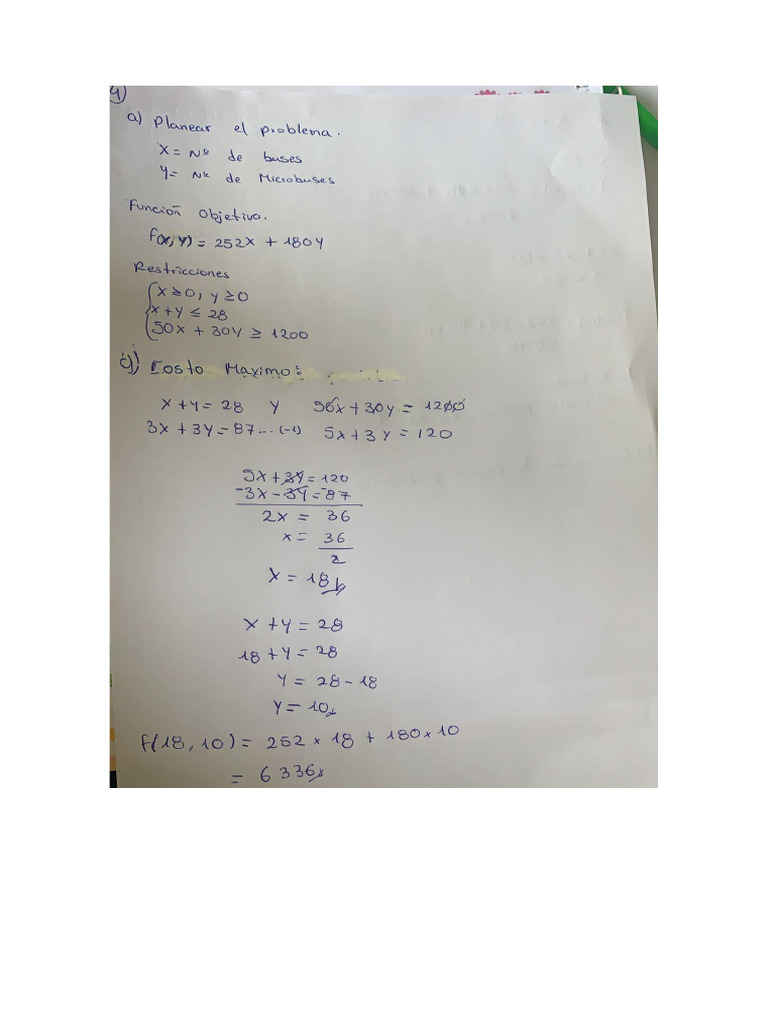 4)
a) Planear el problema.
X = Nº de buses
Y = Nº de Microbuses
Función Objetivo.
f(X,Y) = 252X + 180Y
Restricciones
{ X ≥ 0, Y ≥ 0
X + Y ≤ 28
50X + 30Y ≥ 1200
c) Costo Maximo:
X + Y = 28 Y 50X + 30Y = 1200
3X + 3Y = 87 ... (-1) 5X + 3Y = 120
5X + 3Y = 120
-3X - 3Y = -87
2X = 36
X = 36
2
X = 18
X + Y = 28
18 + Y = 28
Y = 28 - 18
Y = 10
f(18, 10) = 252 × 18 + 180 × 10
= 6 336